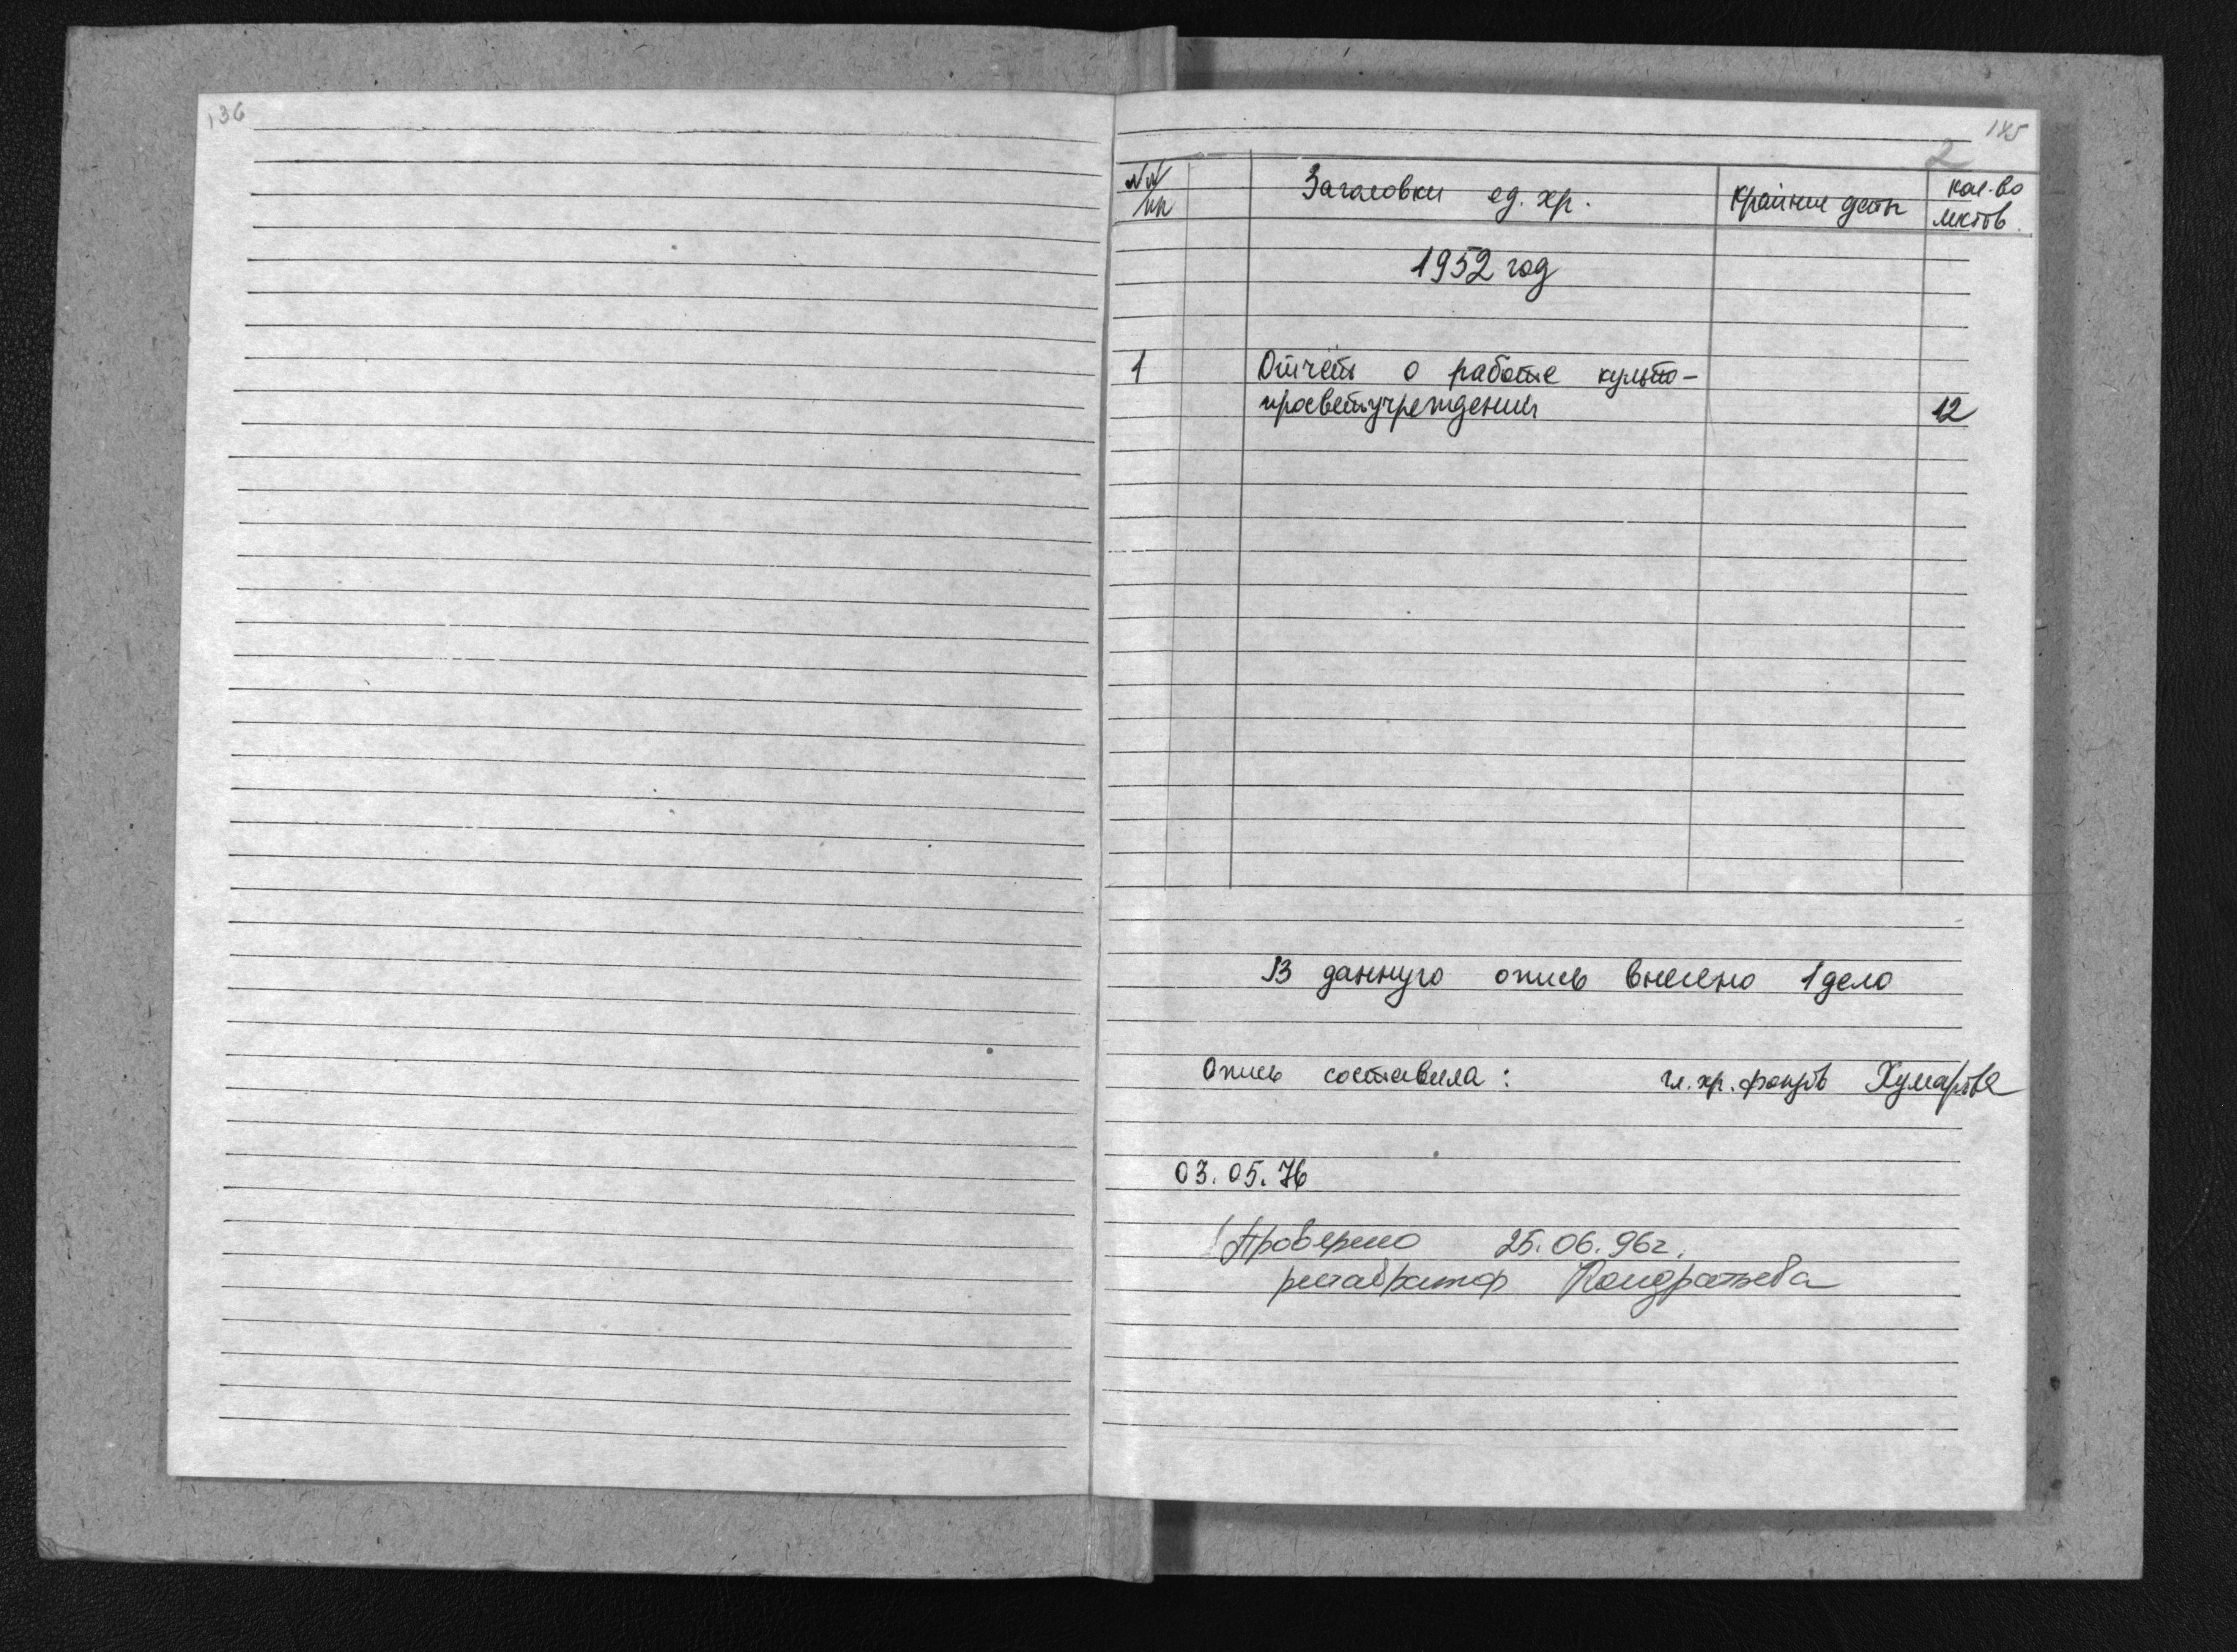 136
2
NN
пп
Заголовки ед. хр.
крайние даты
кол-во
листов.
1952 год
1
Отчёты о работе культо-
просветучреждений
12
В данную опись внесено 1 дело
Опись составила: гл. хр. фондов
03.05.76
Проверено 25.06.96г.
реставратор Кондратьева